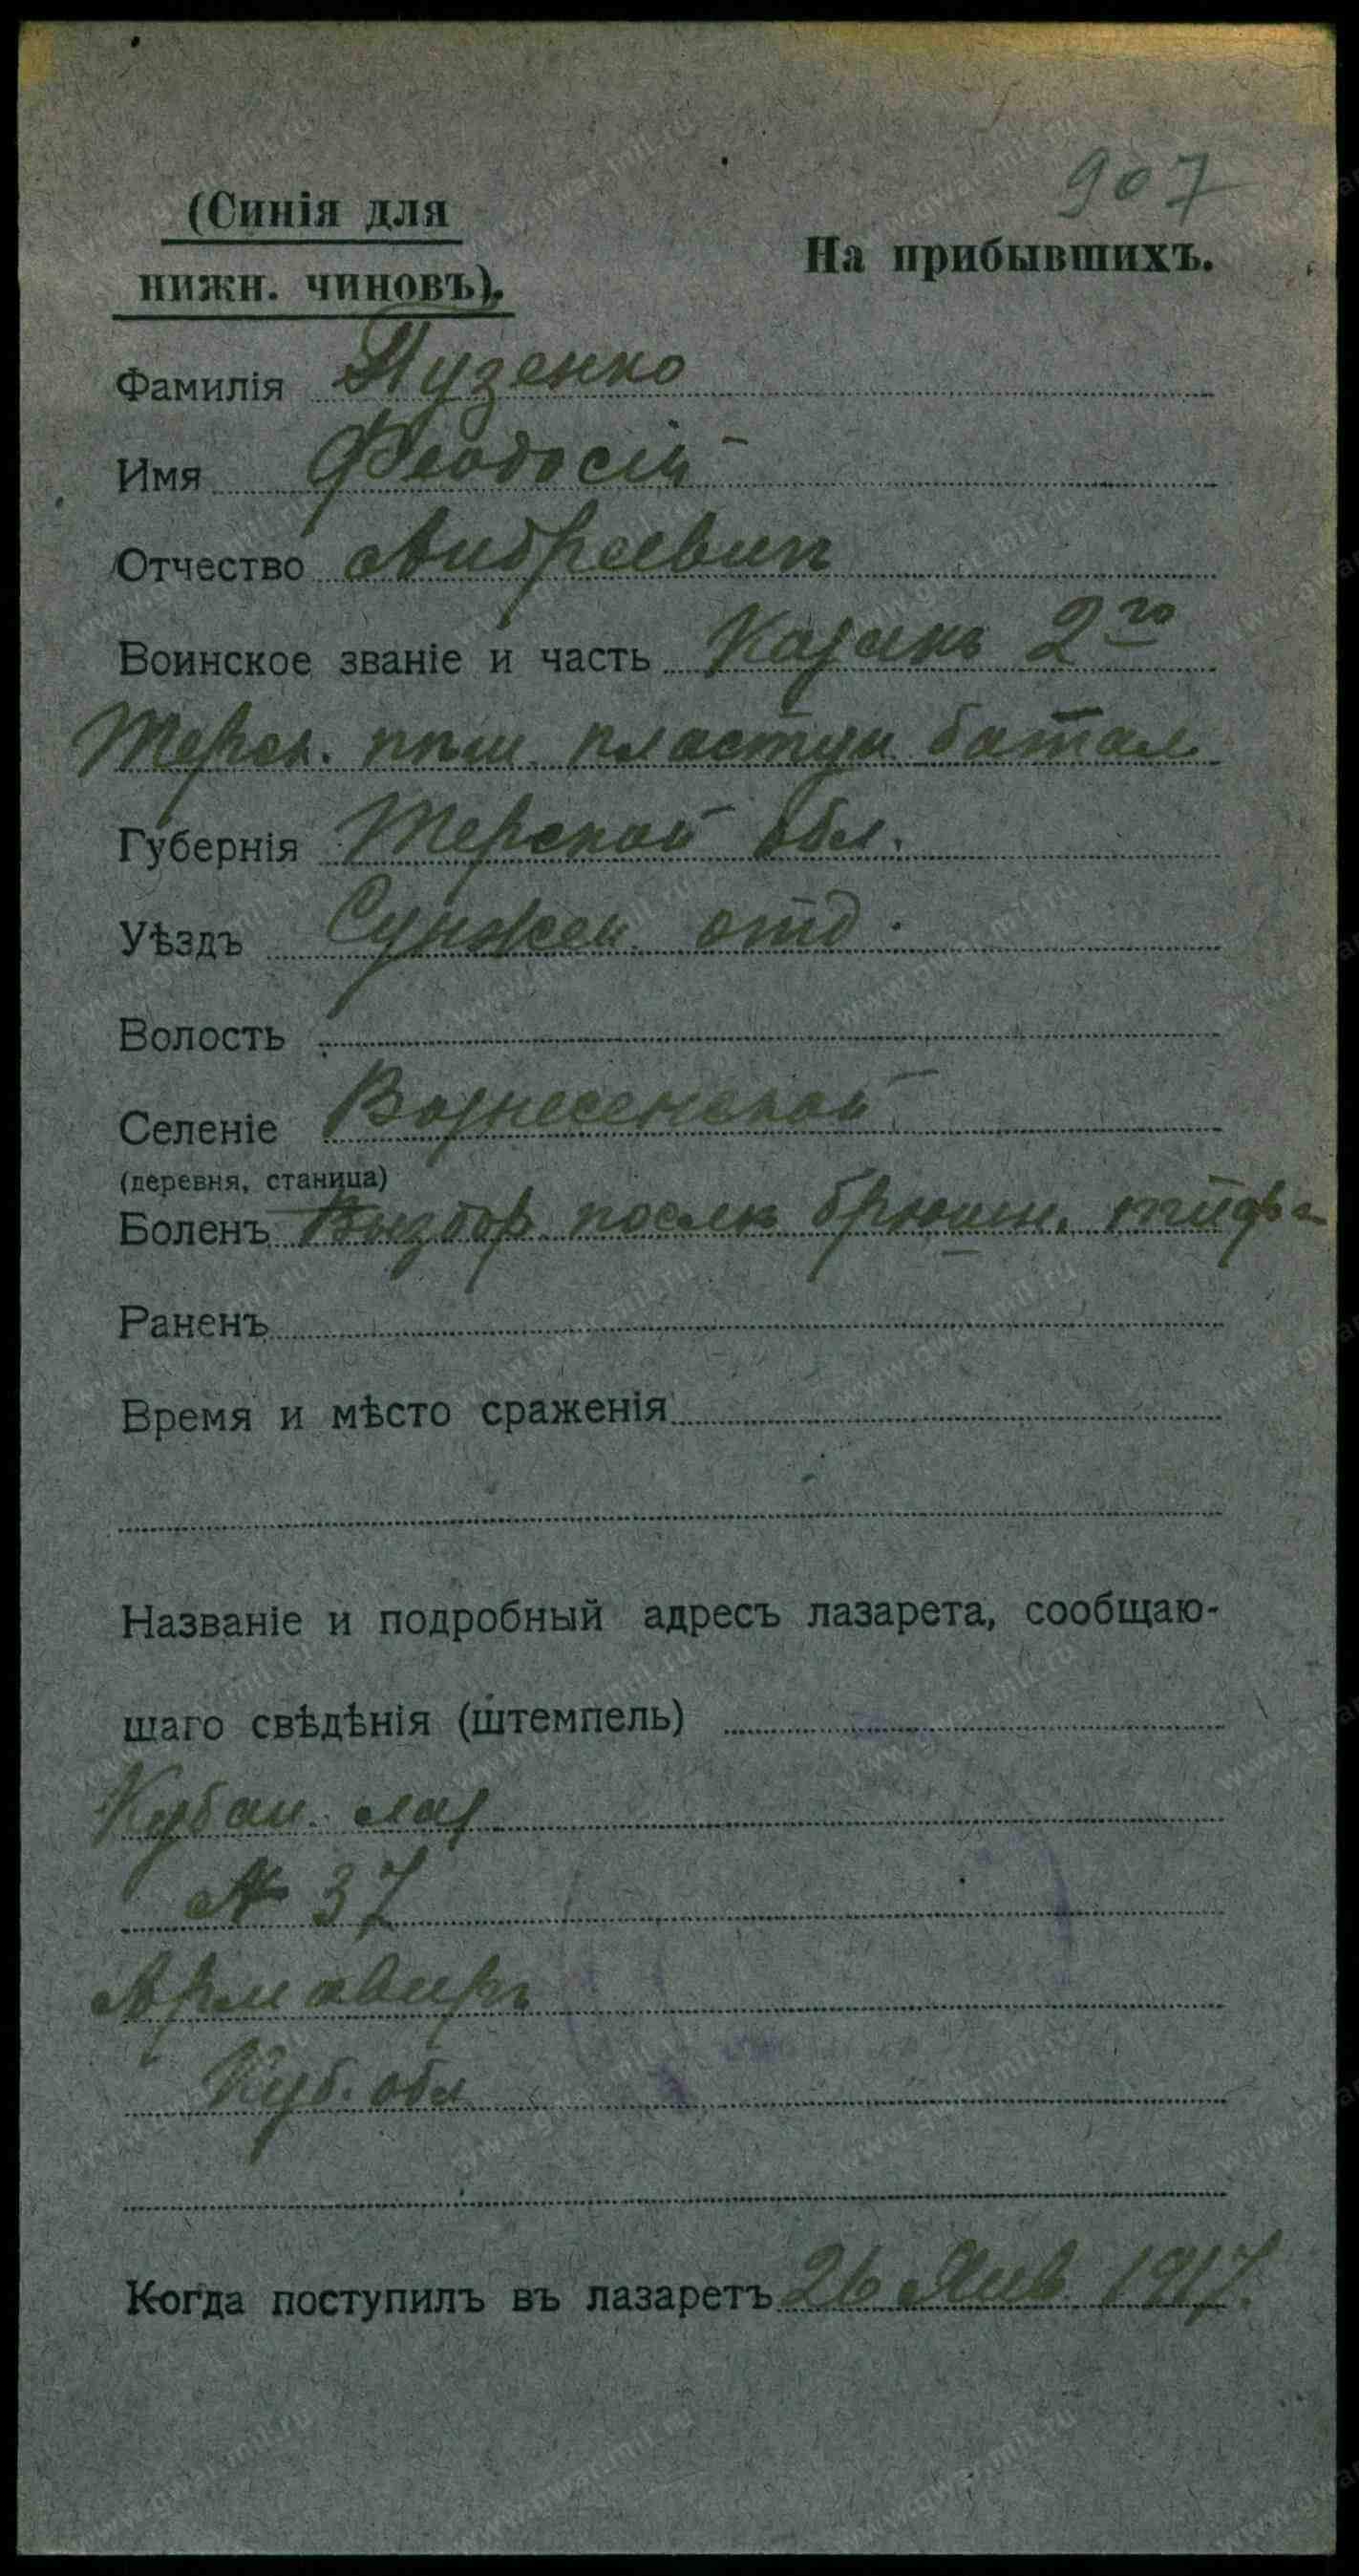 907
(Синія для
нижн. чиновъ).
На прибывшихъ.
Фамилія Пузенко
Имя Феодосій
Отчество Андреевич
Воинское званіе и часть Казакъ 2го
Терск. пластун. батал.
Губернія Терской обл.
Уѣздъ Сунжен. отд.
Волость
Селеніе Вознесенской
(деревня, станица)
Боленъ Выздор. после брюшн. тифа
Раненъ
Время и мѣсто сраженія
Названіе и подробный адресъ лазарета, сообщаю-
щаго свѣдѣнія (штемпель)
Кубан. лаз
№ 37
Армавиръ
Куб. обл
Когда поступилъ въ лазаретъ 26 Янв 1917.